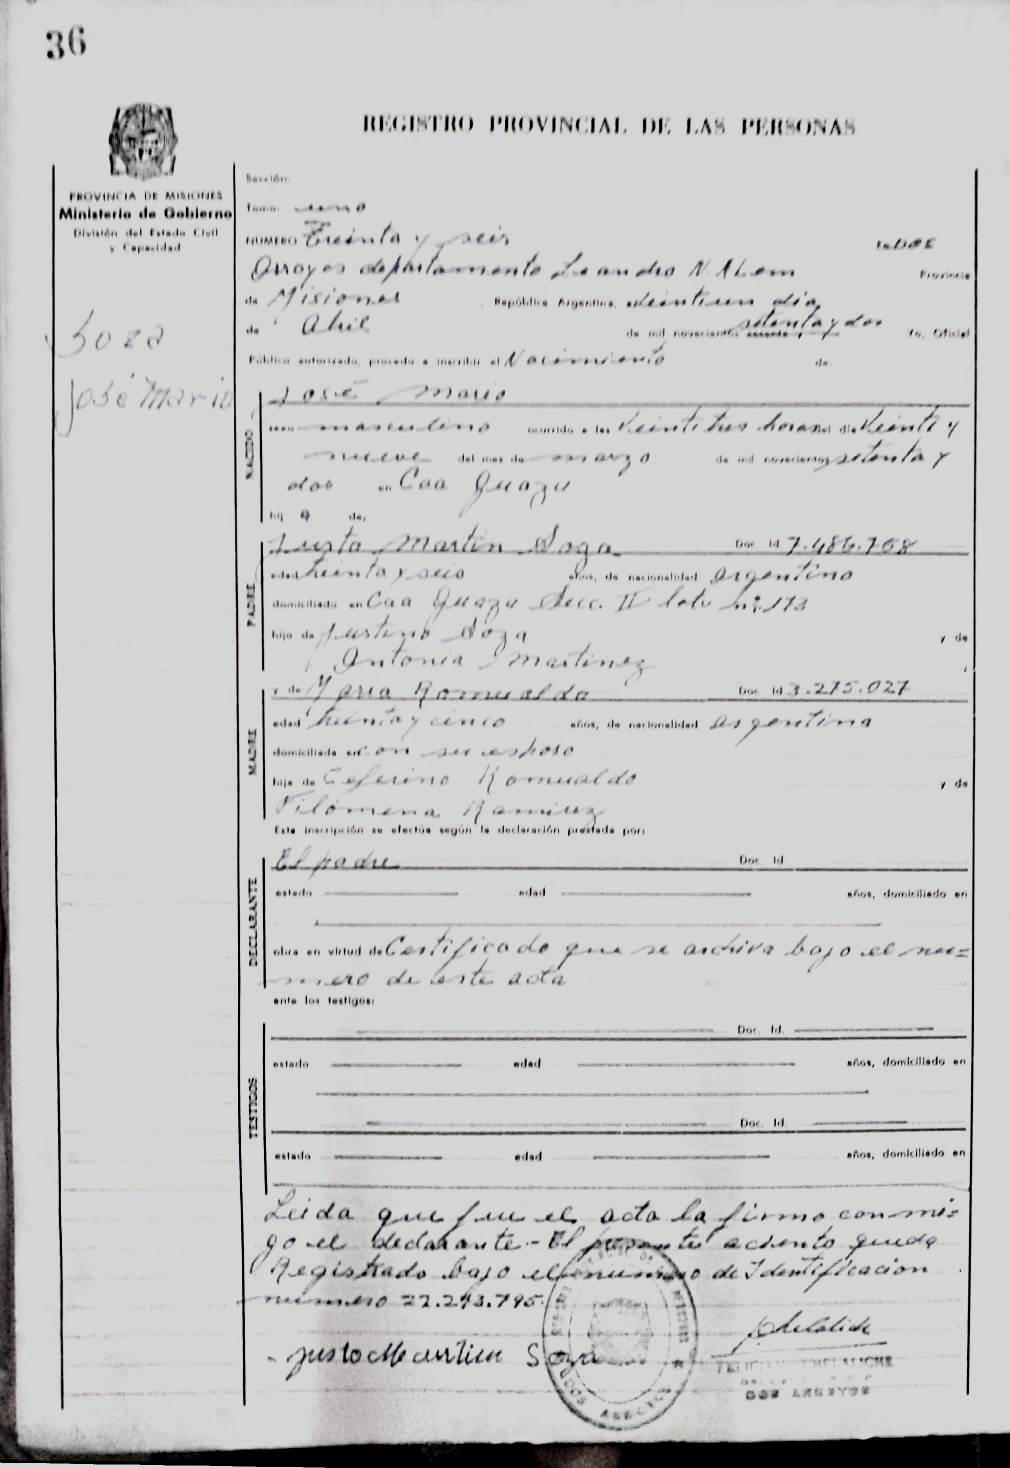 36
REGISTRO PROVINCIAL DE LAS PERSONAS
PROVINCIA DE MISIONES
Ministerio de Gobierno
División del Estado Civil
y Capacidad
Soza
José Mario
Sección:
Tomo: uno
NUMERO Treinta y seis En DOS
Arroyos departamento Leandro N. Alem Provincia
de Misiones República Argentina, a veintiun dia
de Abril de mil novecientos setenta y dos Yo, Oficial
Público autorizado, procedo a inscribir el Nacimiento de
NACIDO
José Mario
sexo masculino ocurrido a las veintitres horas del día Veinti y
nueve del mes de marzo de mil novecientos setenta y
dos en Caa Guazu
hij o de:
PADRE
Justo Martin Soza Doc. Id 7.486.758
edad treinta y seis años, de nacionalidad argentino
domiciliado en Caa Guazu Secc. IV lote nº. 173
hijo de Justino Soza y de
Antonia Martinez
MADRE
y de Maria Romualdo Doc. Id 3.275.027
edad treinta y cinco años, de nacionalidad argentina
domiciliada en con su esposo
hija de Ceferino Romualdo y de
Filomena Ramirez
Esta inscripción se efectúa según la declaración prestada por:
DECLARANTE
El padre Doc. Id
estado edad años, domiciliado en
obra en virtud de Certificado que se archiva bajo el nu=
mero de este acta
ante los testigos:
TESTIGOS
Doc. Id.
estado edad años, domiciliado en
Doc. Id.
estado edad años, domiciliado en
Leida que fue el acta la firma con mi=
go el declarante.- El presente aciento queda
Registrado bajo el numero de Identificacion
numero 22.293.795.
Justo Martin Soza
DOS ARROYOS